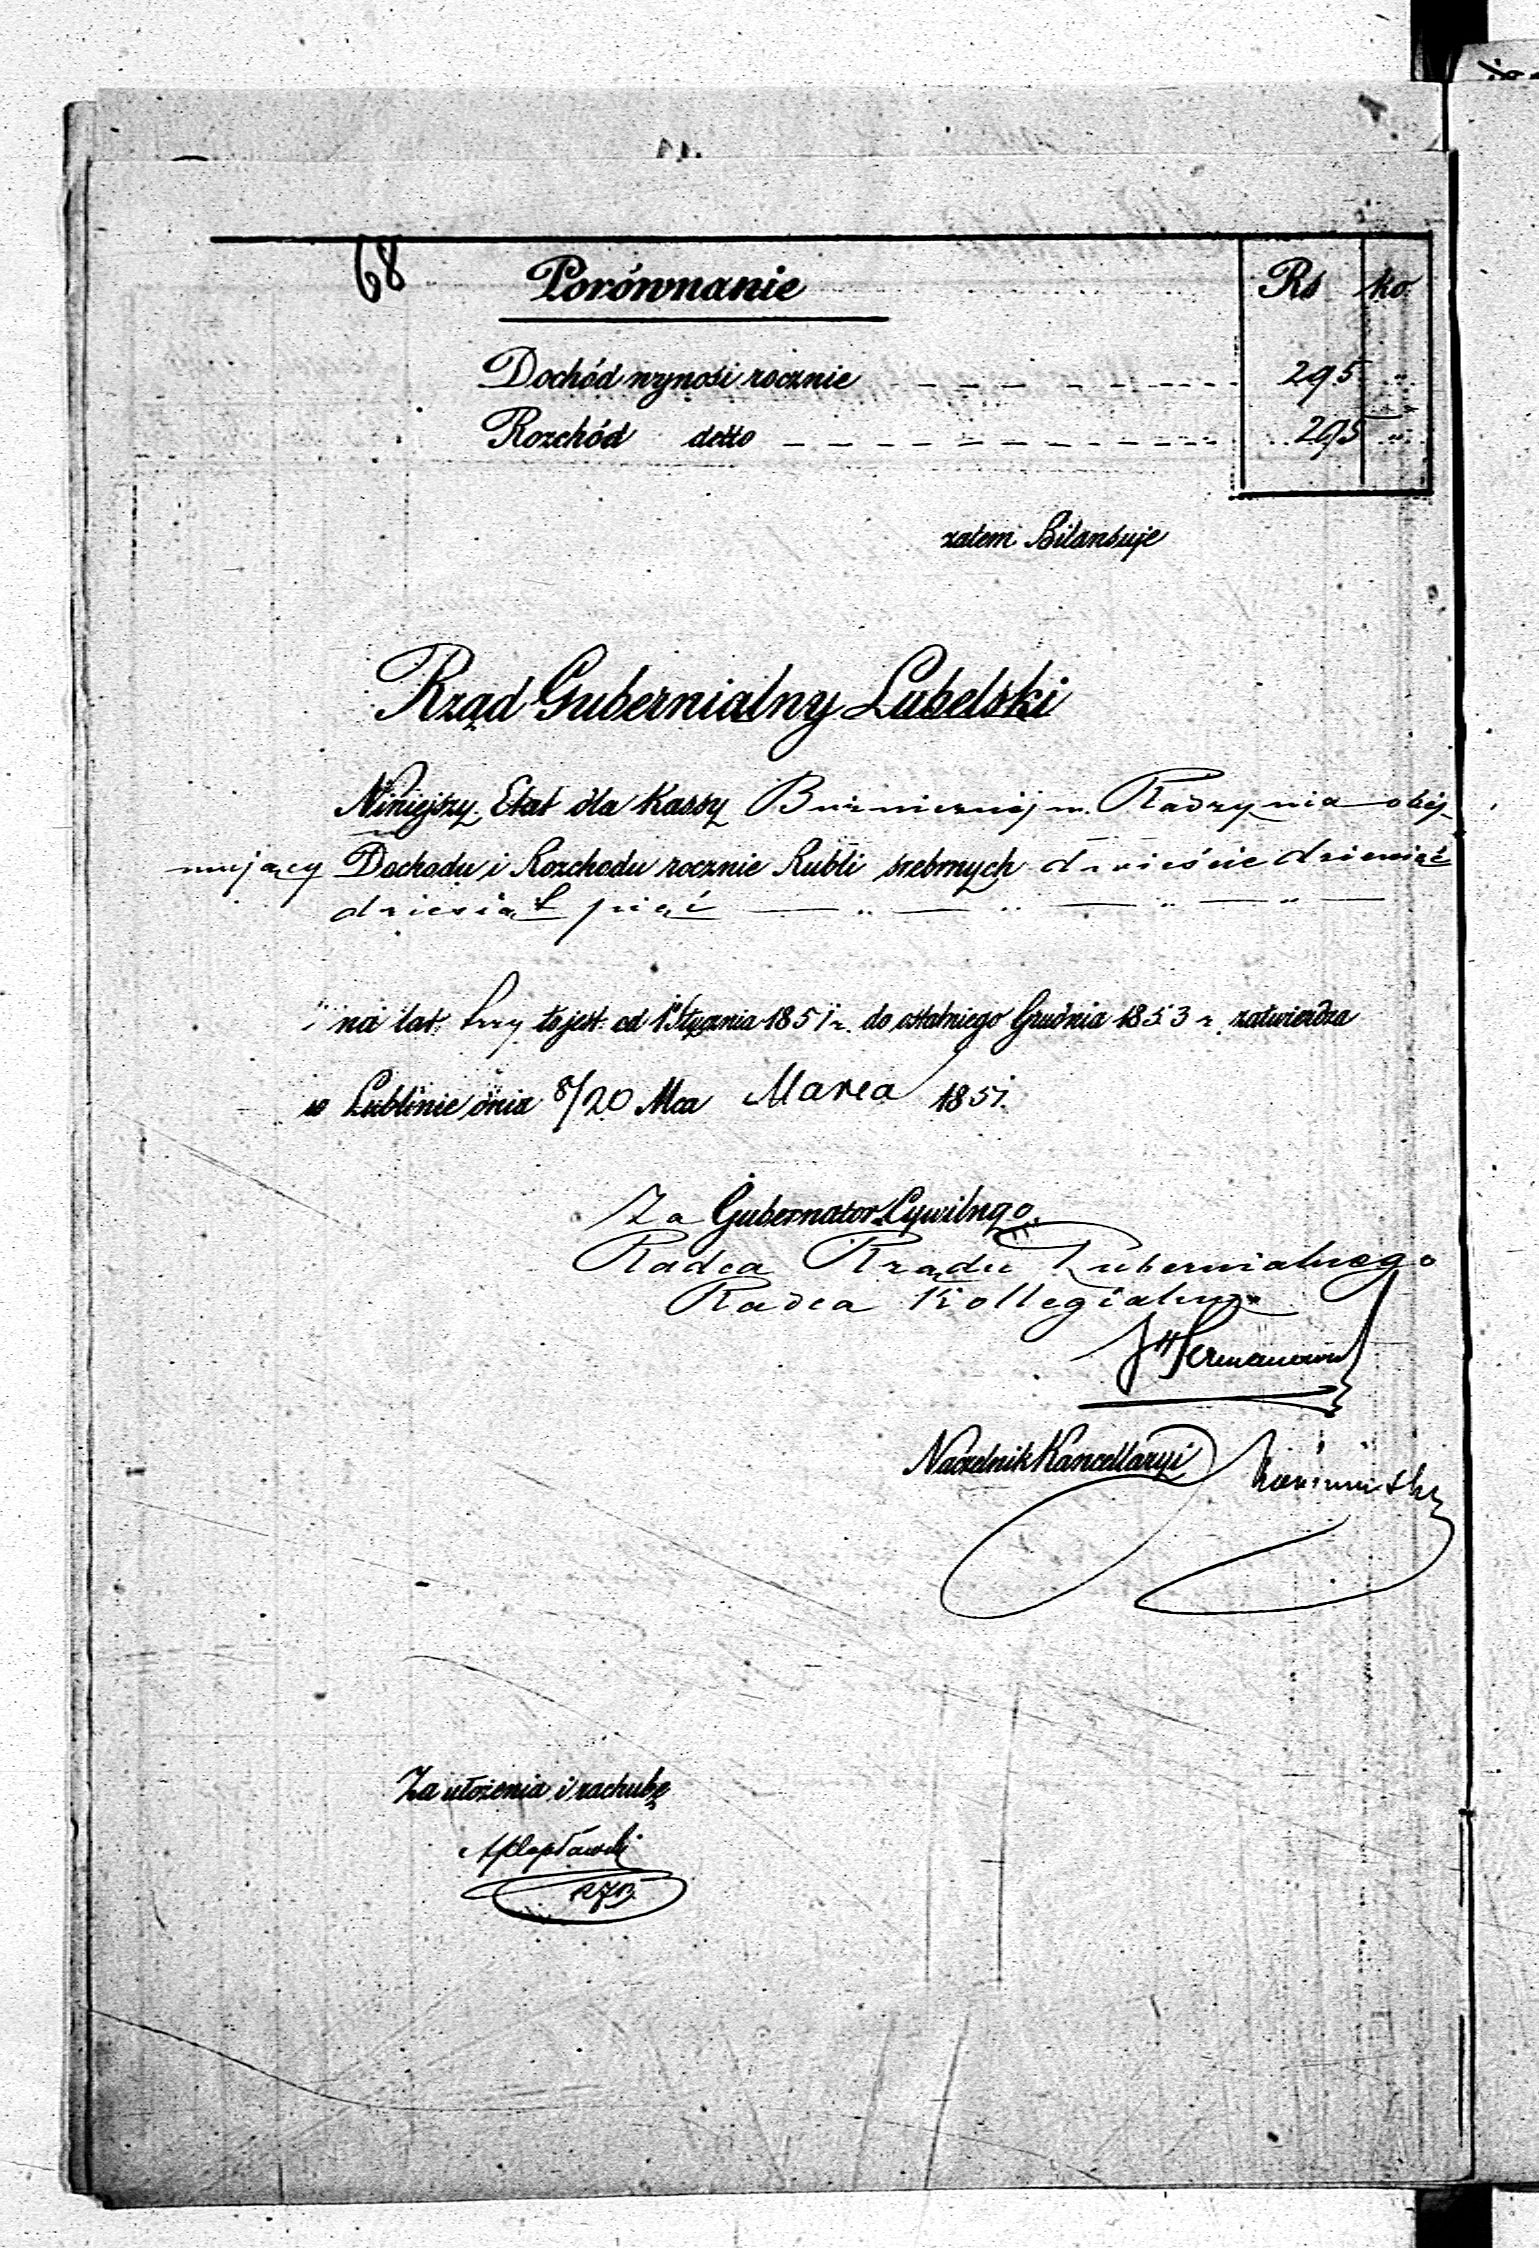 68
Porównanie Rs ko
Dochód wynosi rocznie 295 "
Rozchód detto 295 "
zatem Bilansuje
Rząd Gubernialny Lubelski
Niniejszy Etat dla Kassy Bużnicznéj m. Radzynia obej-
mujący Dochodu i Rozchodu rocznie Rubli srebrnych dwieście dziewięć
dziesiąt pięć — " — " — " — " —
na lat trzy to jest od 1 Stycznia 1851 r. do ostatniego Grudnia 1853 r. zatwierdza
w Lublinie dnia 8/20 Mca Marca 1851.
Za Gubernatora Cywilngo.
Radca Rządu Gubernialnego
Radca Kollegialny
Naczelnik Kancellaryi
Za ułożenia i rachubę